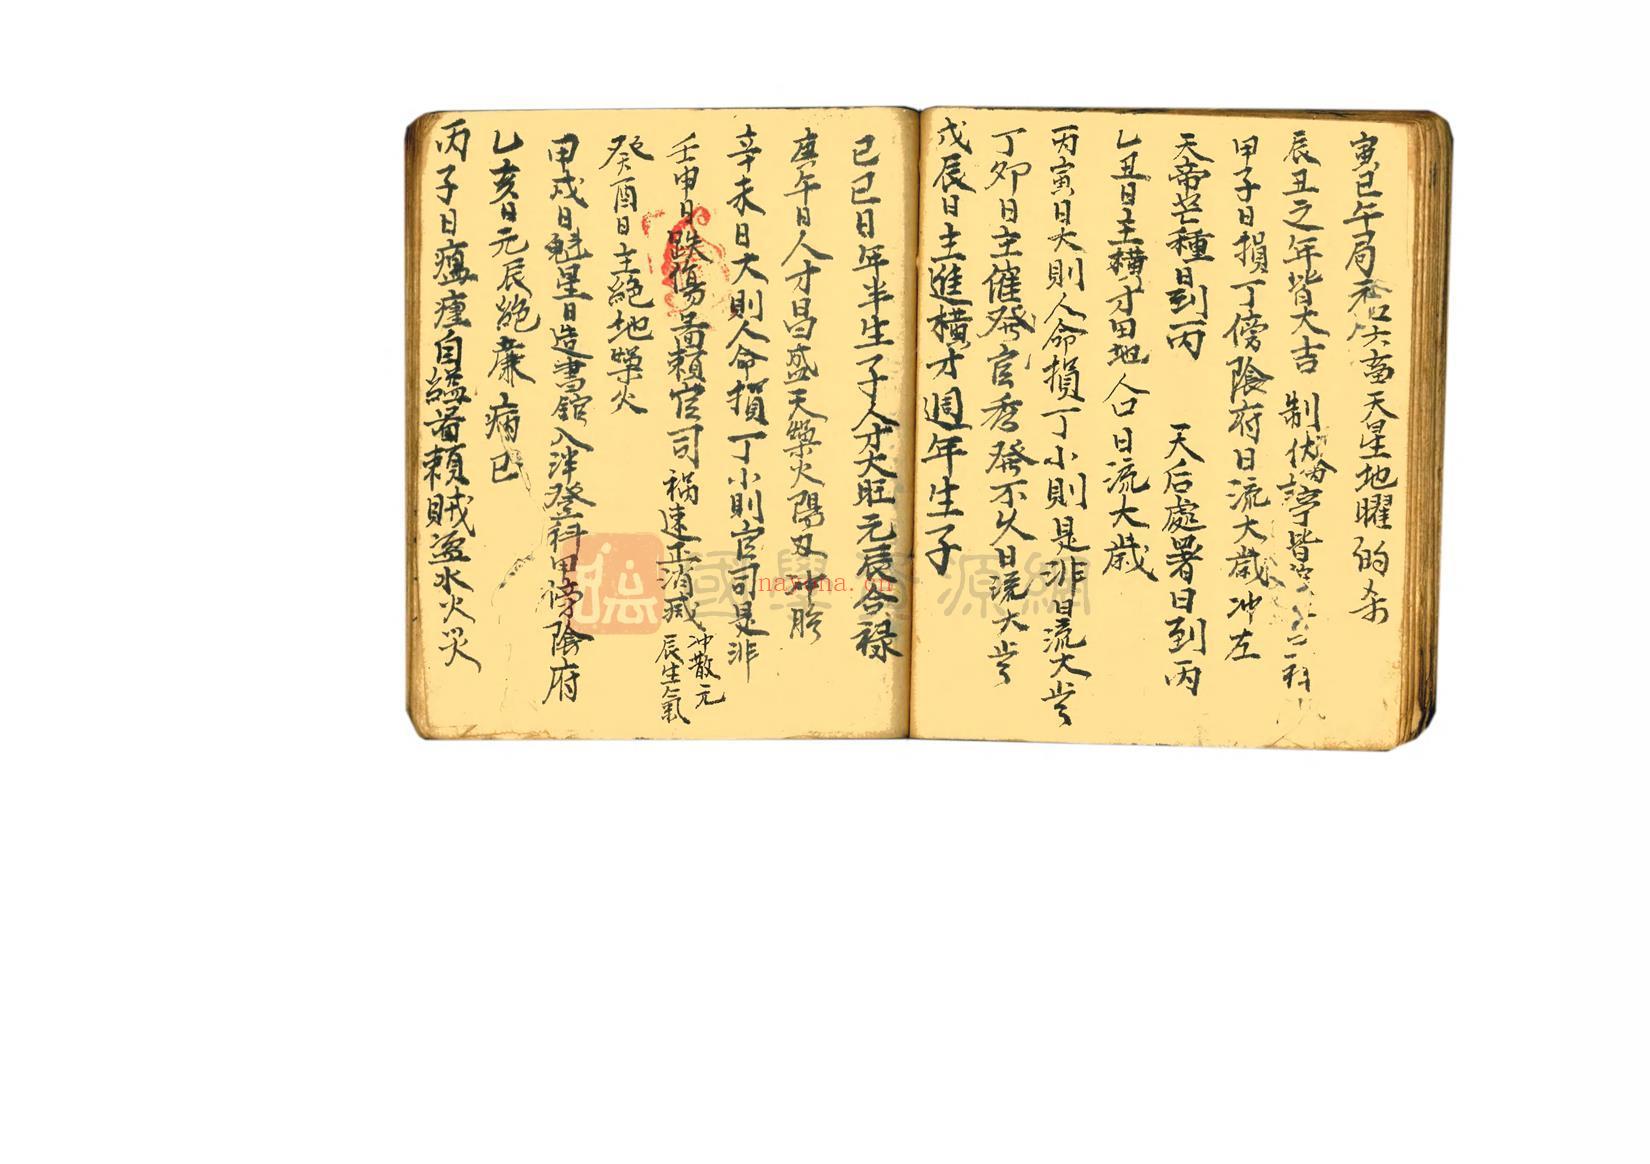 寅巳午局 六畜天星地曜的杀
辰丑之年皆大吉 制伏 皆 科
甲子日損丁傍陰府日流大歲冲左
天帝芒種日到丙 天后處署日到丙
乙丑日主横才田地合日流大歲
丙寅日大則人命損丁小則是非日流大歩
丁卯日主催發官秀發不久日流大歩
戊辰日主進横才週年生子
己巳日年半生子人才大旺元辰合禄
庚午日人才昌盛天 火陽刃冲胎
辛未日大則人命損丁小則官司是非
壬申日跌傷 頼官司禍速正消减
冲散元
辰生氣
癸酉日主絕地 火
甲戌日魁星日造書館入泮登科甲傍陰府
乙亥日元辰絕 病
丙子日瘟 自縊 頼賊盗水火災
國學資源網
nayona.cn